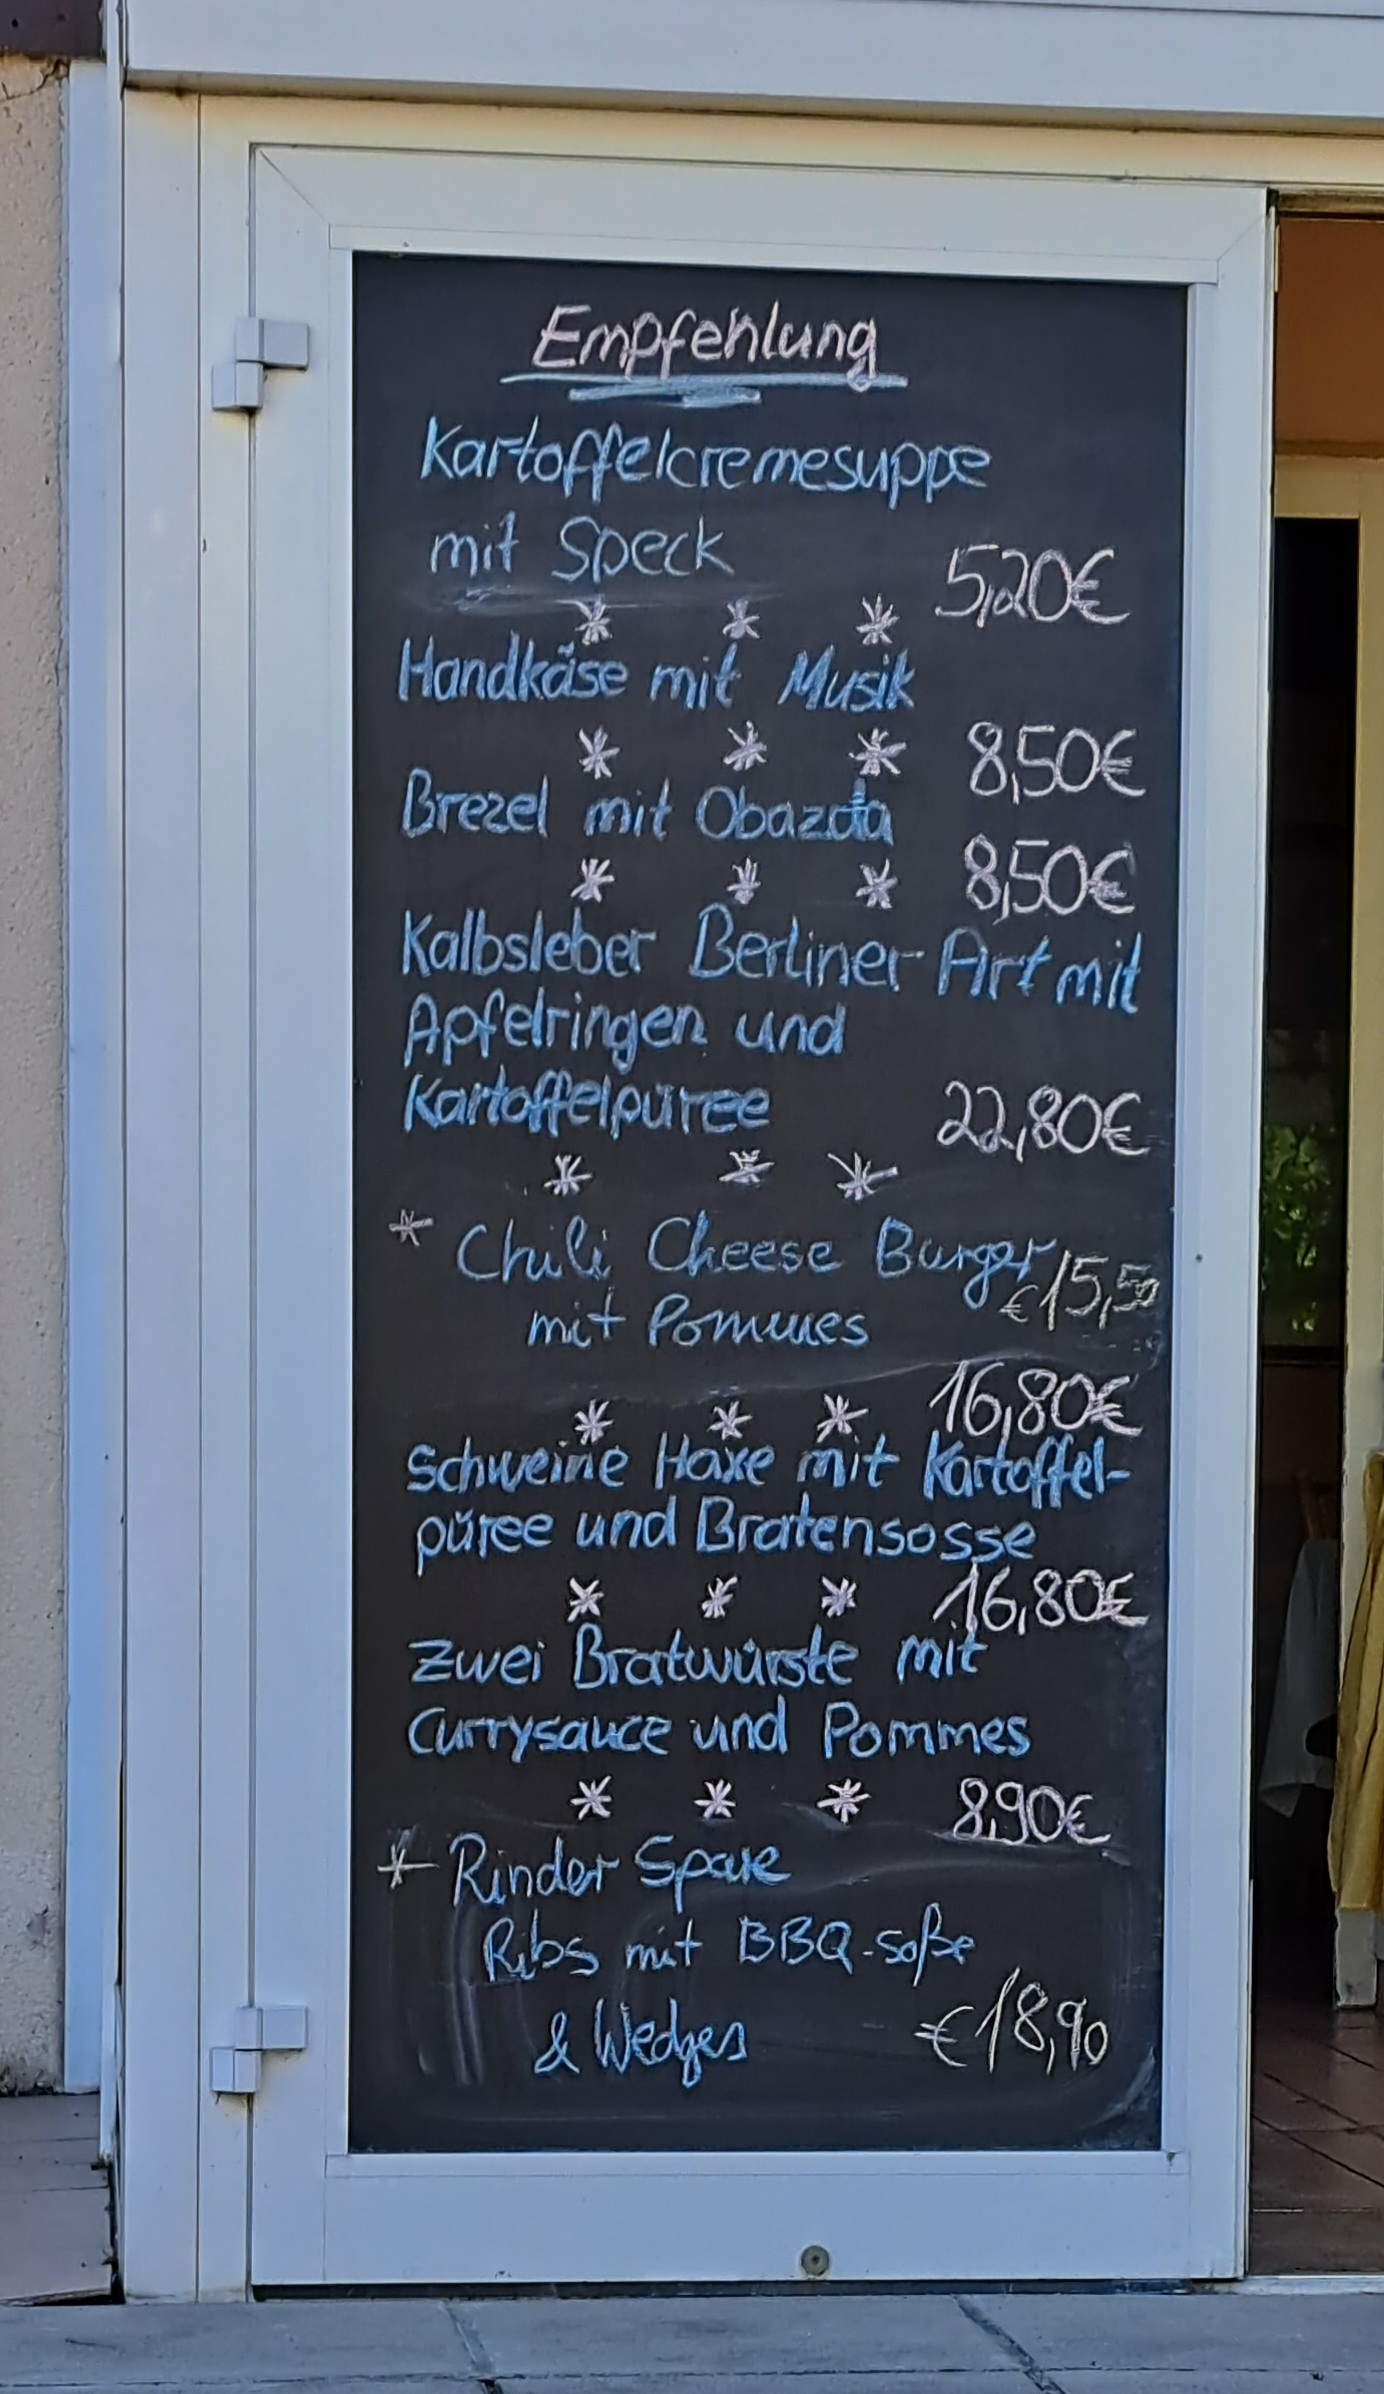 Empfehlung
Kartoffelcremesuppe
mit Speck
5,20€
* * *
Handkäse mit Musik
* * * 8,50€
Brezel mit Obazda
* * * 8,50€
Kalbsleber Berliner Art mit
Apfelringen und
Kartoffelpüree 22,80€
* * *
* Chili Cheese Burger
€15,50
mit Pommes
* * * 16,80€
Schweine Haxe mit Kartoffel-
püree und Bratensosse
* * * 16,80€
Zwei Bratwürste mit
Currysauce und Pommes
* * * 8,90€
* Rinder Spare
Ribs mit BBQ-Soße
& Wedges €18,90